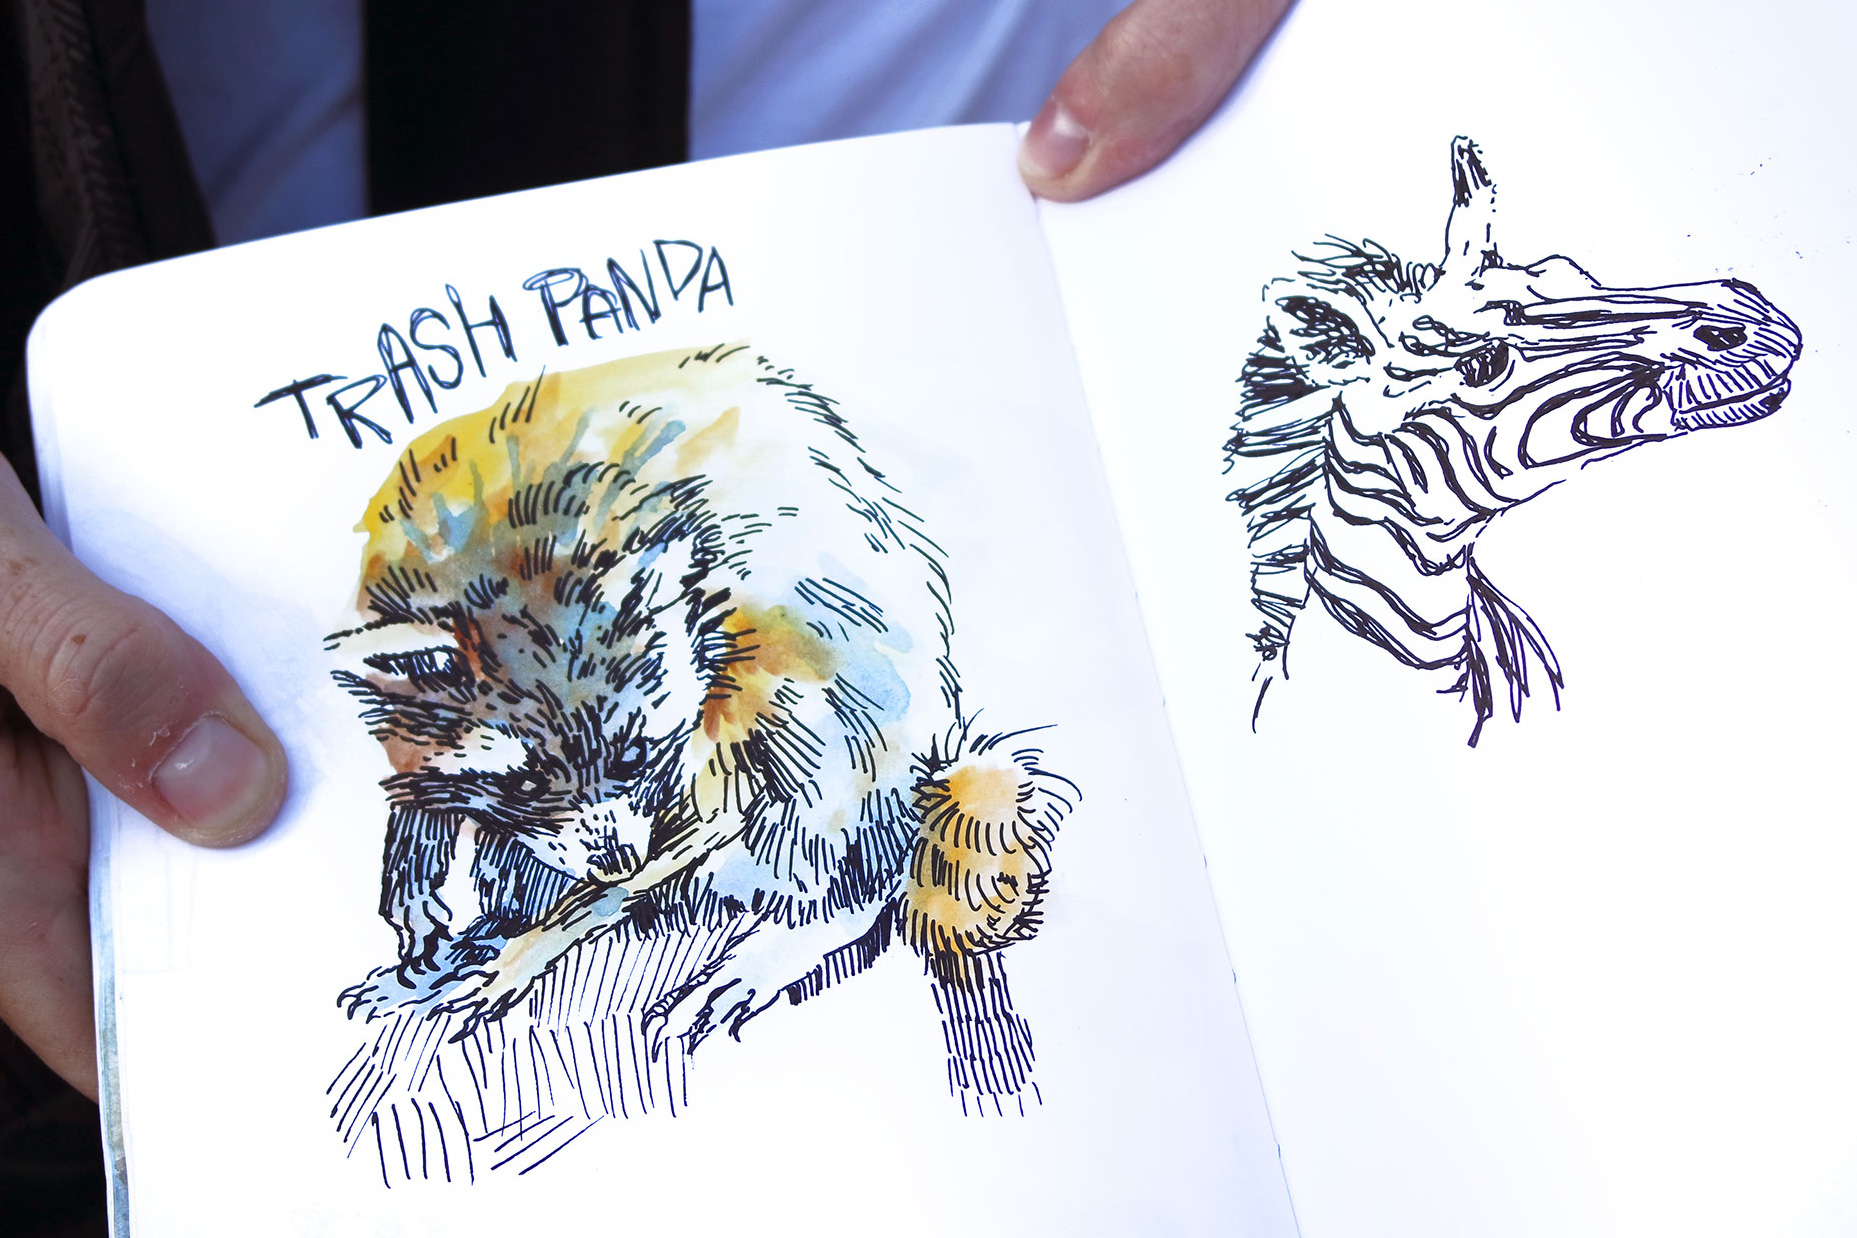 TRASH PANDA